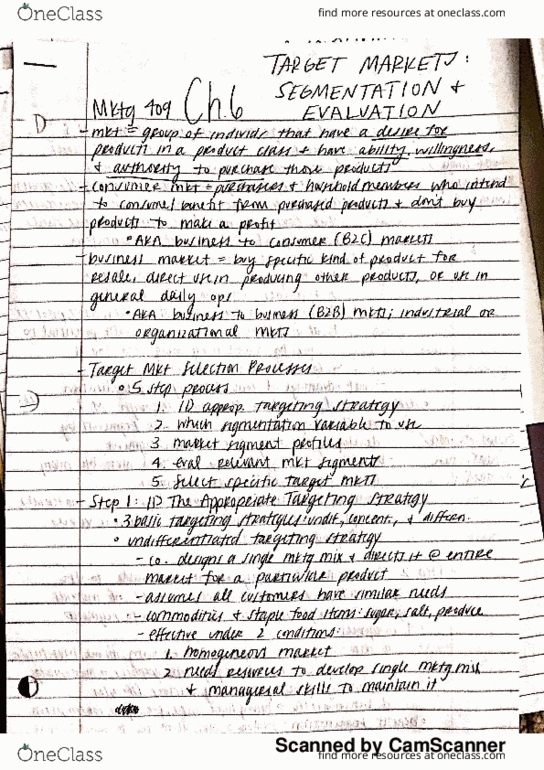 OneClass
find more resources at oneclass.com
TARGET MARKETS:
SEGMENTATION &
EVALUATION
Mktg 409 Ch.6
- mkt = group of individs that have a desire for
products in a product class & have ability, willingness,
& authority to purchase those products
- consumer mkt = purchasers & household members who intend
to consume/benefit from purchased products & don't buy
products to make a profit
• AKA business to consumer (B2C) markets
- business market = buy specific kind of product for
resale, direct use in producing other products, or use in
general daily ops
• AKA business to business (B2B) mkts; industrial or
organizational mkts
- Target Mkt Selection Processes
• 5 step process
1. ID approp. targeting strategy
2. which segmentation variable to use
3. market segment profiles
4. eval relevant mkt segments
5. select specific target mkts
- Step 1: ID The Appropriate Targeting Strategy
• 3 basic targeting strategies: undif, concent., & differen.
• undifferentiated targeting strategy
- co. designs a single mktg mix & directs it @ entire
market for a particular product
- assumes all customers have similar needs
- commodities & staple food items: sugar, salt, produce
- effective under 2 conditions:
1. homogeneous market
2. needs resources to develop single mktg mix
& managerial skills to maintain it
Scanned by CamScanner
OneClass
find more resources at oneclass.com